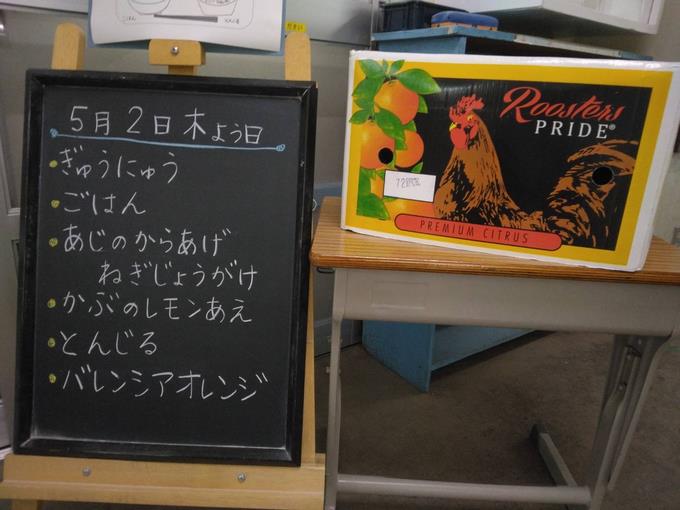 5月2日木よう日
ぎゅうにゅう
ごはん
あじのからあげ
ねぎじょうがけ
かぶのレモンあえ
とんじる
バレンシアオレンジ
Roosters
PRIDE®
PREMIUM CITRUS
ごはん